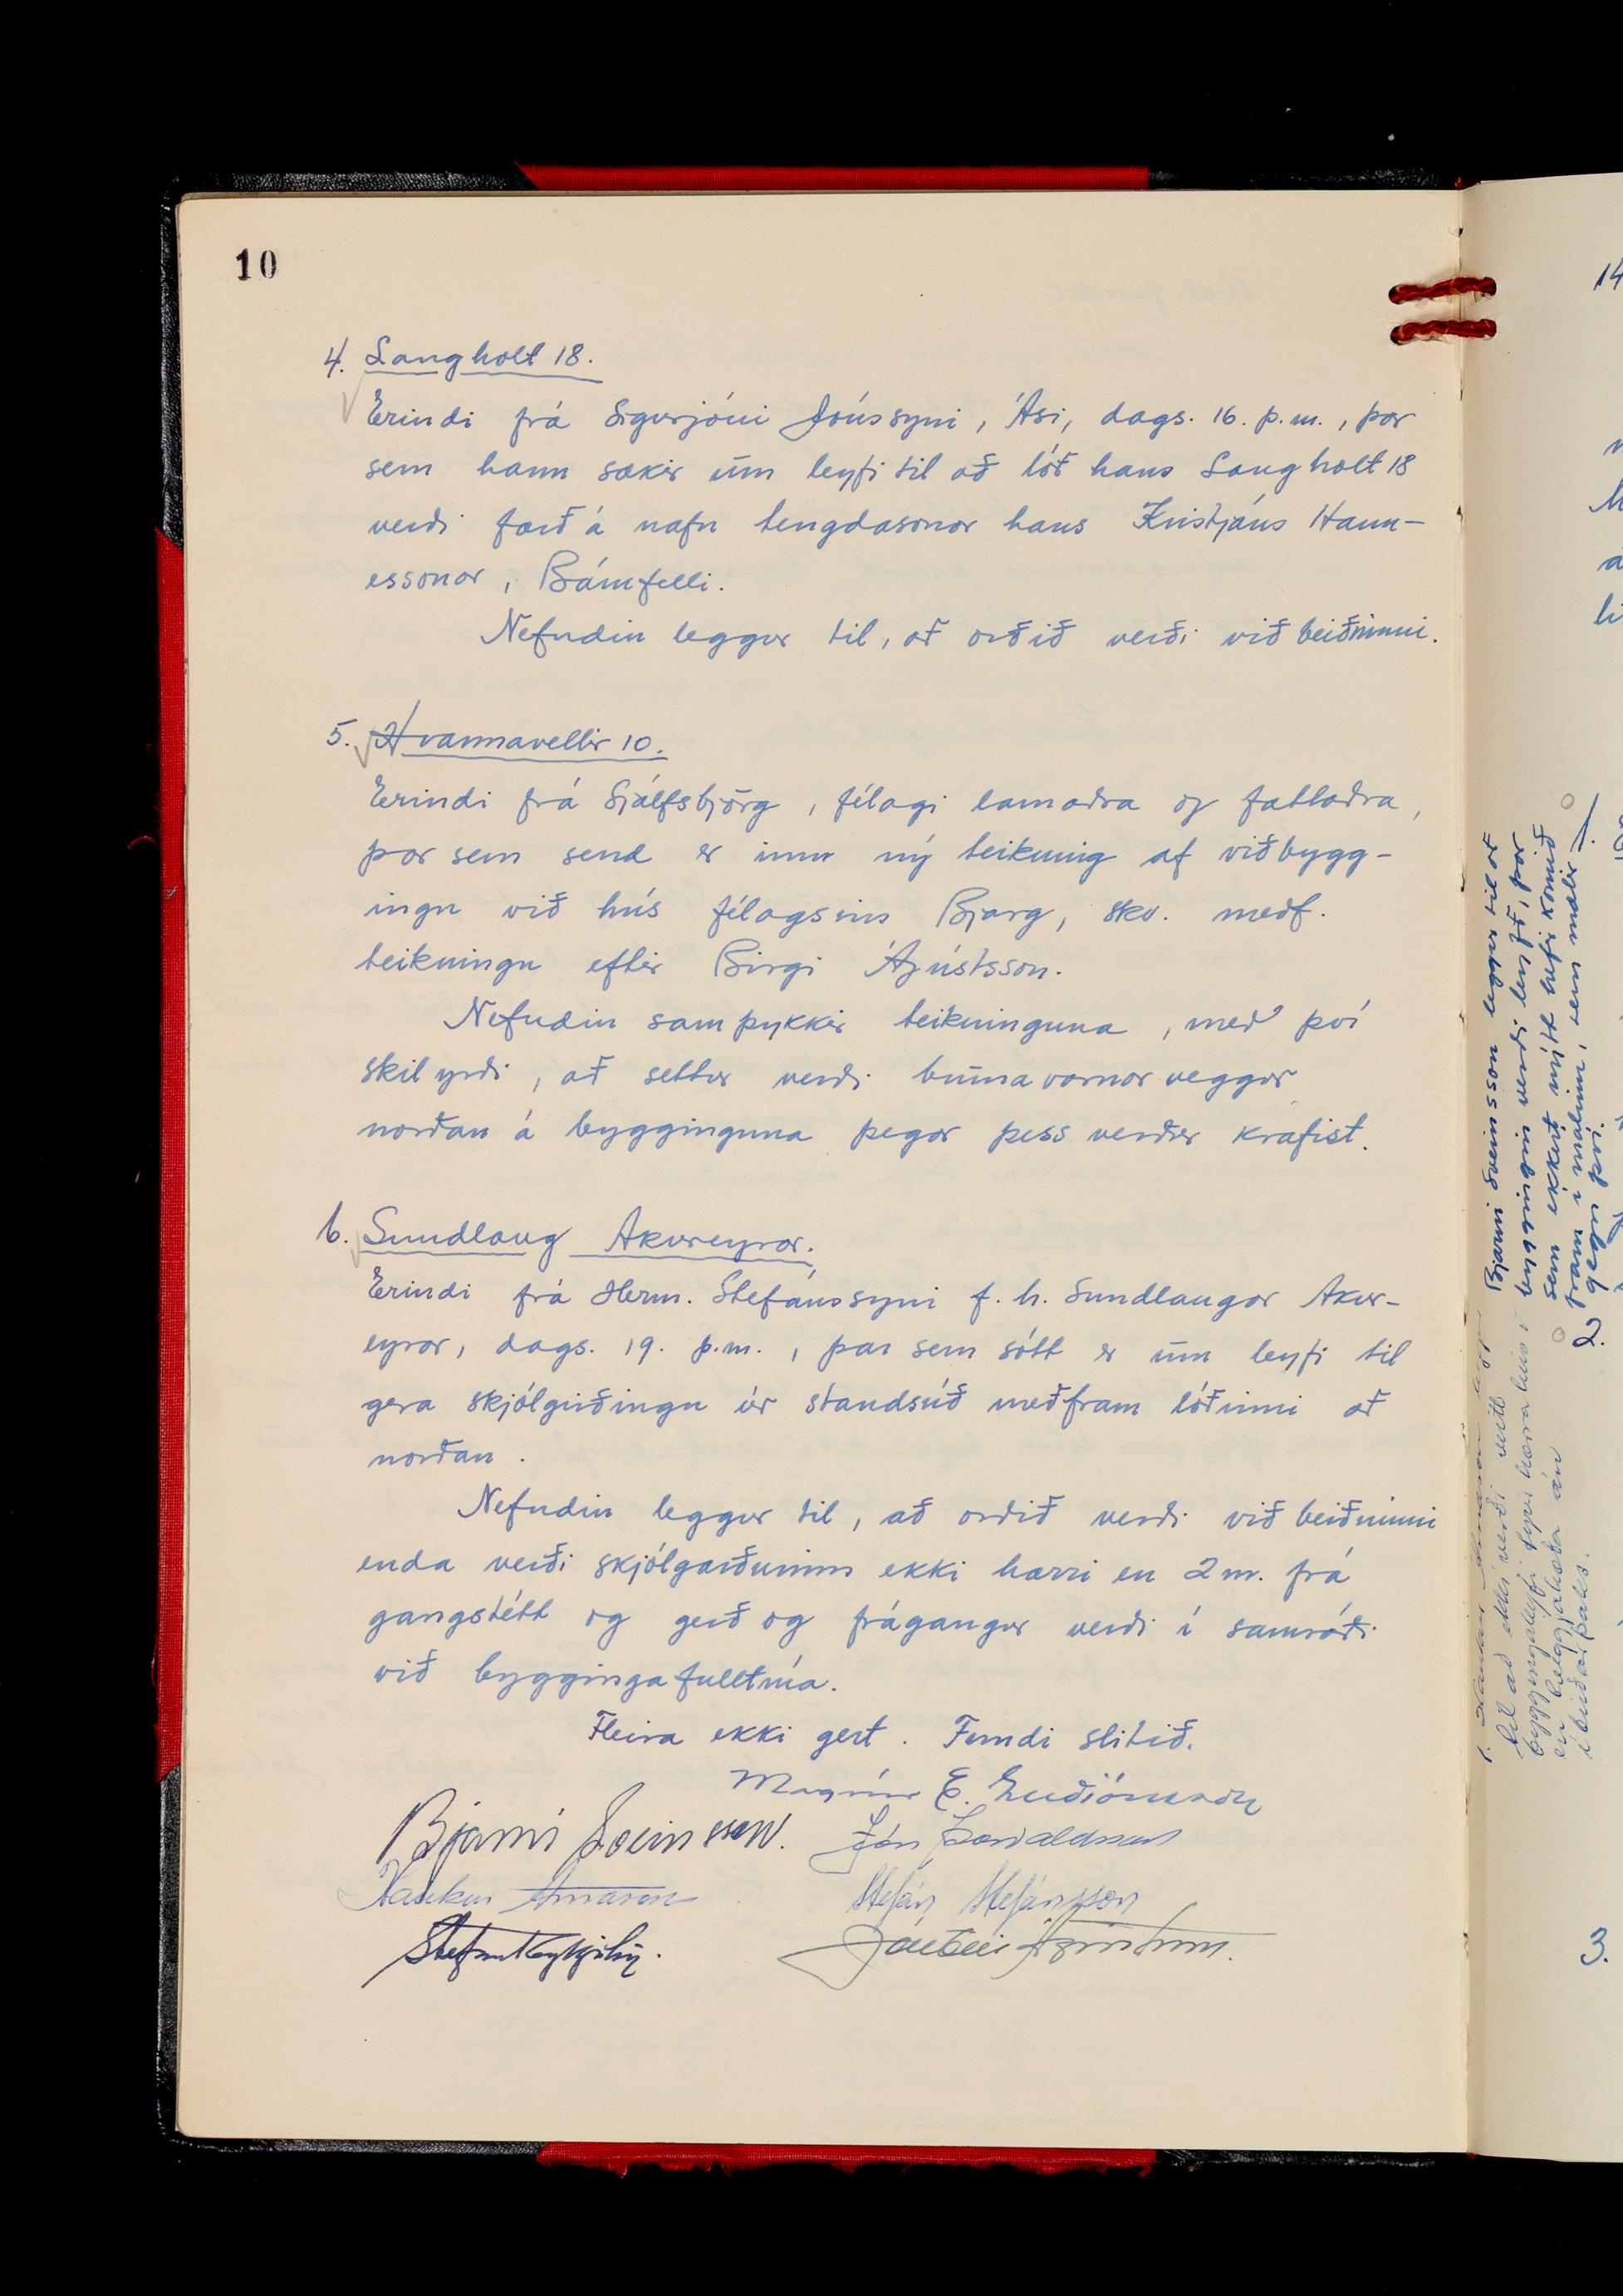 10
4. Langholt 18.
Erindi frá Sigurjóni Jónssyni, Ási, dags. 16. þ.m., þar
sem hann sækir um leyfi til að lóð hans Langholt 18
verði færð á nafn tengdasonar hans Kristjáns Hann-
essonar, Bámfelli.
Nefndin leggur til, að orðið verði við beiðninni.
5. Hvannavellir 10.
Erindi frá Sjálfsbjörg, félagi lamaðra og fatlaðra,
þar sem send er inn ný teikning af viðbygg-
ingu við hús félagsins Bjarg, skv. meðf.
teikningu eftir Birgi Ágústsson.
Nefndin samþykkir teikninguna, með því
skilyrði, að settur verði brunavarnarveggur
norðan á bygginguna þegar þess verður krafist.
6. Sundlaug Akureyrar.
Erindi frá Herm. Stefánssyni f.h. Sundlaugar Akur-
eyrar, dags. 19. þ.m., þar sem sótt er um leyfi til
gera skjólgirðingu úr standsúð meðfram lóðinni að
norðan.
Nefndin leggur til, að orðið verði við beiðninni
enda verði skjólgarðurinn ekki hærri en 2 m. frá
gangstétt og gerð og frágangur verði í samráði
við byggingafulltrúa.
Fleira ekki gert. Fundi slitið.
Magnús E. Guðjónsson
Bjarni Sveinsson. Jón Þorvaldsson
Haukur Árnason Stefán Stefánsson
Stefán Reykjalín. Ágústsson.
14
Bjarni Sveinsson leggur til að
byggingin verði leyfð, þar
sem ekkert nýtt hefir komið
fram í málinu, sem mælir
gegn því.
1. Haukur Árnason leggur
til að ekki verði veitt
byggingaleyfi fyrir hærra hús
í
án
2.
3.